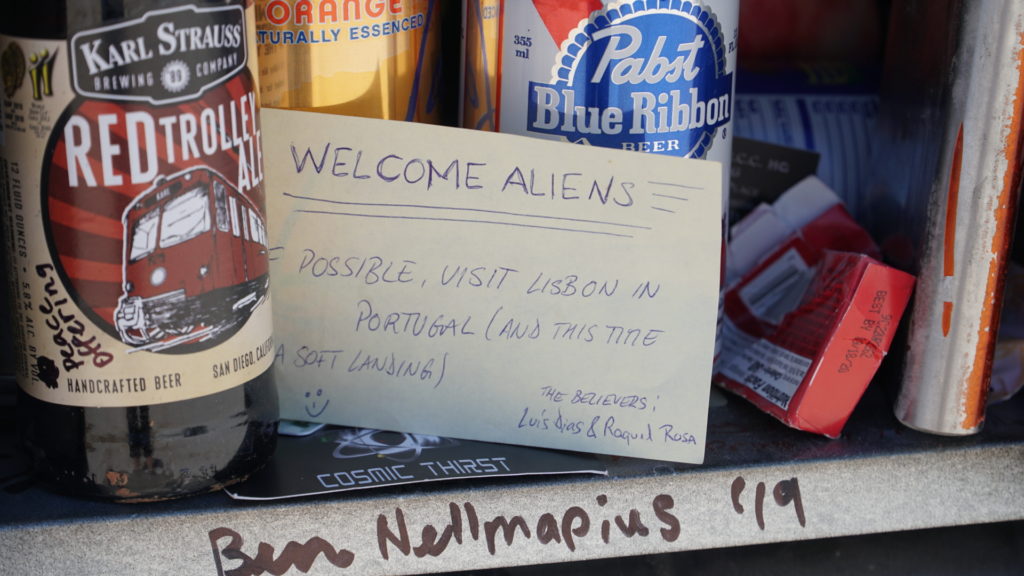 KARL STRAUSS
BREWING COMPANY
RED TROLLEY
ALE
12 FLUID OUNCES • 5.8% ALC. BY VOL
peace
offering
HANDCRAFTED BEER
SAN DIEGO, CALIFO
ORANGE
NATURALLY ESSENCED
355
ml
Pabst
Blue Ribbon
BEER
WELCOME ALIENS
POSSIBLE, VISIT LISBON IN
PORTUGAL (AND THIS TIME
A SOFT LANDING)
:)
THE BELIEVERS:
Luís Dias & Raquel Rosa
COSMIC THIRST
BEST BY
Ben Nellmapius '19